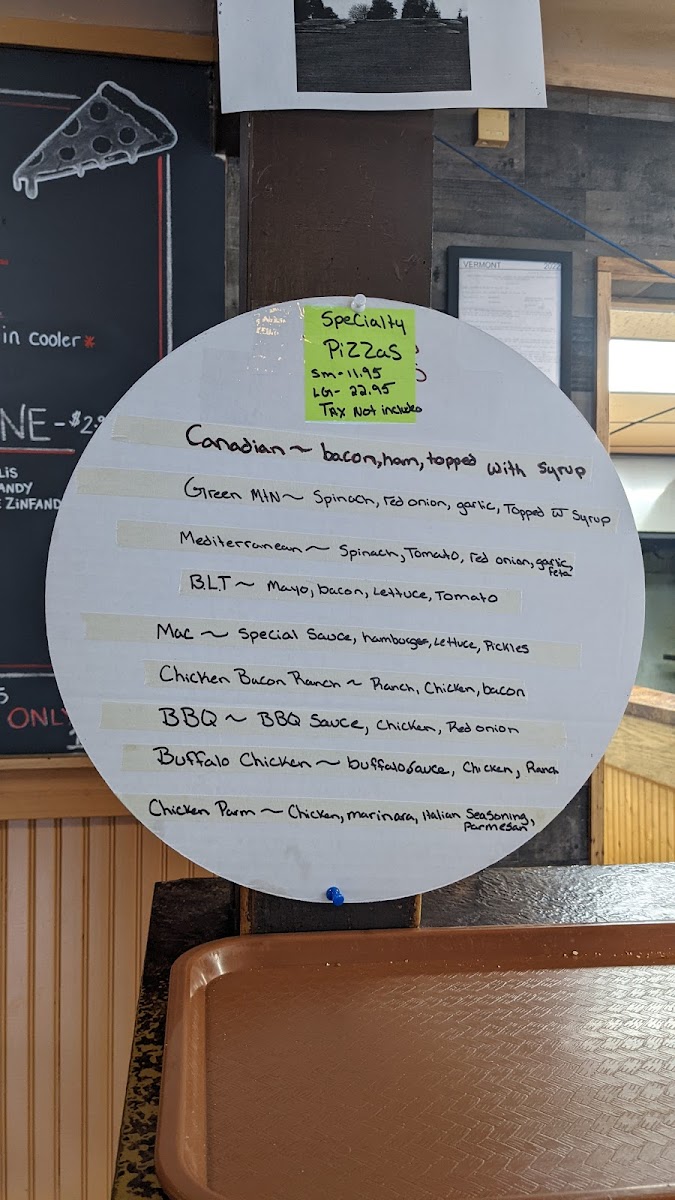 VERMONT 2022
in cooler*
NE-$2.9
LIS
ANDY
ZINFAND
ONLY
Specialty
PiZZas
Sm-11.95
LG- 22.95
TAX Not included
Canadian ~ bacon, ham, topped with syrup
Green MTN ~ Spinach, red onion, garlic, Topped W Syrup
Mediterranean ~ Spinach, Tomato, red onion, garlic,
feta
B.L.T ~ Mayo, bacon, Lettuce, Tomato
Mac ~ Special Sauce, hamburger, Lettuce, Pickles
Chicken Bacon Ranch ~ Ranch, Chicken, bacon
BBQ ~ BBQ Sauce, Chicken, Red onion
Buffalo Chicken ~ buffalo Sauce, Chicken, Ranch
Chicken Parm ~ Chicken, marinara, Italian Seasoning,
Parmesan